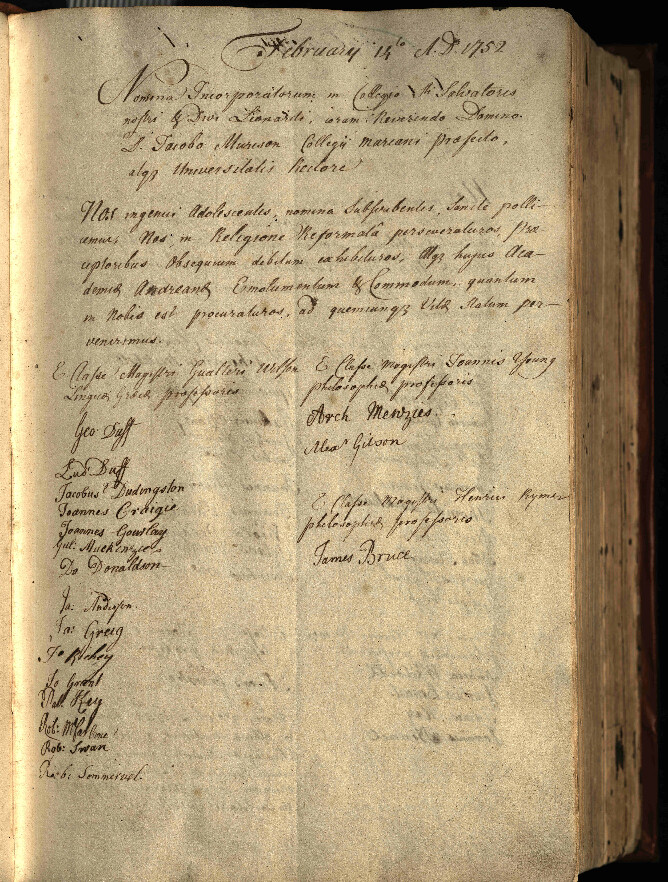 February 14to A.D. 1752
Nomina Incorporatorum in Collegio Sti Salvatoris
nostri & Divi Leonardi, coram Reverendo Domino
D. Jacobo Murison Collegii Mariani Præfecto,
atqz Universitatis Rectore
Nos ingenui Adolescentes, nomina Subscribentes, Sancte polli-
cemur, Nos in Religione Reformata perseveraturos, Præ-
ceptoribus Obsequium debitum exhibituros, Atqz hujus Aca-
demiæ Andreanæ Emolumentum & Commodum, quantum
in Nobis est procuraturos, ad quemcunqz Vitæ Statum per-
venerimus.
E Classe Magistri Gualteri Wilson
Linguæ Græcæ professoris
Geo Duff
Lud: Duff
Jacobus Dudingston
Joannes Craigie
Joannes Gourlay
Gul: Mackenzie
Do Donaldson
Ja: Anderson.
Ja: Greig
Jo Richey
Jo Grant
Pat: Key
Rot: McCar
Rob: Swan
Rob: Sommervel.
E Classe Magistri Joannis Young
philosophiæ professoris
Arch Menzies.
Alexr Gibson
E Classe Magistri Henrici Rymer
philosophiæ professoris
James Bruce